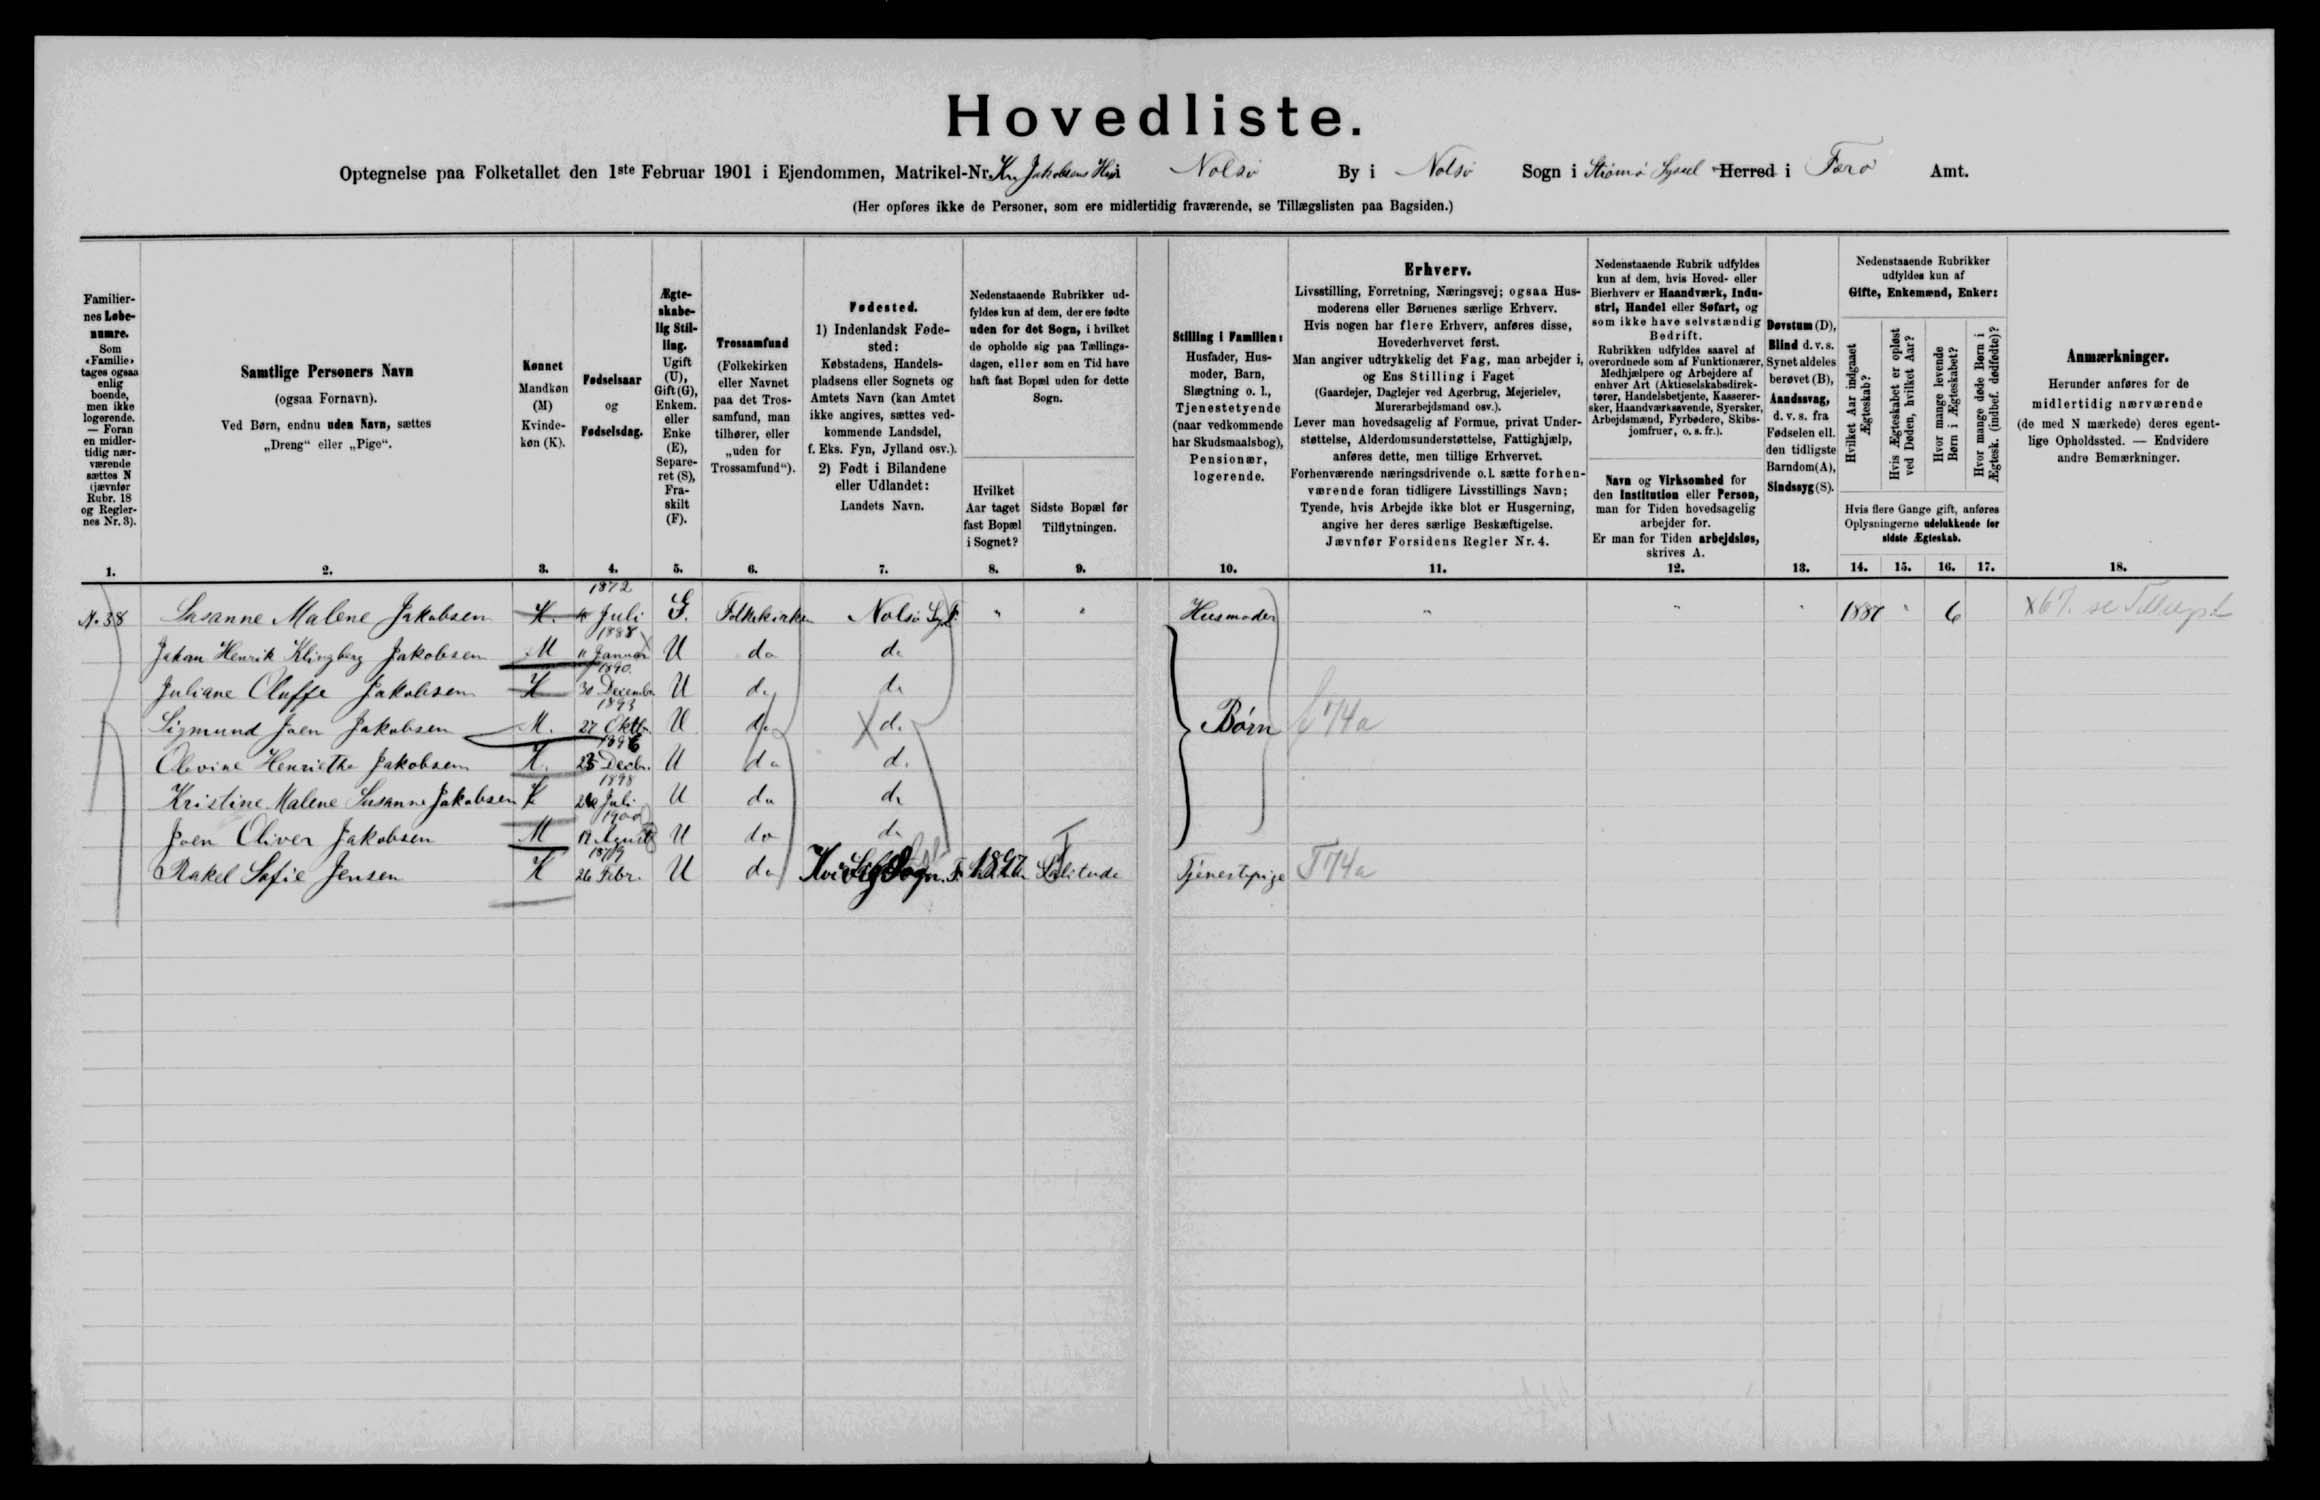 Hovedliste.
Optegnelse paa Folketallet den 1ste Februar 1901 i Ejendommen, Matrikel-Nr. Jakobsens Hus Nolsø By i Nolsø Sogn i Strømø Syssel Herred i Færø Amt.
(Her opføres ikke de Personer, som ere midlertidig fraværende, se Tillægslisten paa Bagsiden.)
Familier-
nes Løbe-
numre.
Som
«Familie»
tages ogsaa
enlig
boende,
men ikke
logerende.
— Foran
en midler-
tidig nær-
værende
sættes N
(jævnfør
Rubr. 18
og Regler-
nes Nr. 3).
1.
Samtlige Personers Navn
(ogsaa Fornavn).
Ved Børn, endnu uden Navn, sættes
„Dreng“ eller „Pige“.
2.
Kønnet
Mandkøn
(M)
Kvinde-
køn (K).
3.
Fødselsaar
og
Fødselsdag.
4.
Ægte-
skabe-
lig Stil-
ling.
Ugift
(U),
Gift (G),
Enkem.
eller
Enke
(E),
Separe-
ret (S),
Fra-
skilt
(F).
5.
Trossamfund
(Folkekirken
eller Navnet
paa det Tros-
samfund, man
tilhører, eller
„uden for
Trossamfund“).
6.
Fødested.
1) Indenlandsk Føde-
sted:
Købstadens, Handels-
pladsens eller Sognets og
Amtets Navn (kan Amtet
ikke angives, sættes ved-
kommende Landsdel,
f. Eks. Fyn, Jylland osv.).
2) Født i Bilandene
eller Udlandet:
Landets Navn.
7.
Nedenstaaende Rubrikker ud-
fyldes kun af dem, der ere fødte
uden for det Sogn, i hvilket
de opholde sig paa Tællings-
dagen, eller som en Tid have
haft fast Bopæl uden for dette
Sogn.
Hvilket
Aar taget
fast Bopæl
i Sognet?
8.
Sidste Bopæl før
Tilflytningen.
9.
Stilling i Familien:
Husfader, Hus-
moder, Barn,
Slægtning o. l.,
Tjenestetyende
(naar vedkommende
har Skudsmaalsbog),
Pensionær,
logerende.
10.
Erhverv.
Livsstilling, Forretning, Næringsvej; ogsaa Hus-
moderens eller Børnenes særlige Erhverv.
Hvis nogen har flere Erhverv, anføres disse,
Hovederhvervet først.
Man angiver udtrykkelig det Fag, man arbejder i,
og Ens Stilling i Faget
(Gaardejer, Daglejer ved Agerbrug, Mejerielev,
Murerarbejdsmand osv.).
Lever man hovedsagelig af Formue, privat Under-
støttelse, Alderdomsunderstøttelse, Fattighjælp,
anføres dette, men tillige Erhvervet.
Forhenværende næringsdrivende o. l. sætte forhen-
værende foran tidligere Livsstillings Navn;
Tyende, hvis Arbejde ikke blot er Husgerning,
angive her deres særlige Beskæftigelse.
Jævnfør Forsidens Regler Nr. 4.
11.
Nedenstaaende Rubrik udfyldes
kun af dem, hvis Hoved- eller
Bierhverv er Haandværk, Indu-
stri, Handel eller Søfart, og
som ikke have selvstændig
Bedrift.
Rubrikken udfyldes saavel af
overordnede som af Funktionærer,
Medhjælpere og Arbejdere af
enhver Art (Aktieselskabsdirek-
tører, Handelsbetjente, Kasserer-
sker, Haandværkssvende, Syersker,
Arbejdsmænd, Fyrbødere, Skibs-
jomfruer, o. s. fr.).
Navn og Virksomhed for
den Institution eller Person,
man for Tiden hovedsagelig
arbejder for.
Er man for Tiden arbejdsløs,
skrives A.
12.
Døvstum (D),
Blind d. v. s.
Synet aldeles
berøvet (B),
Aandssvag,
d. v. s. fra
Fødselen ell.
den tidligste
Barndom (A),
Sindssyg (S).
13.
Nedenstaaende Rubrikker
udfyldes kun af
Gifte, Enkemænd, Enker:
Hvilket Aar indgaaet
Ægteskab?
Hvis Ægteskabet er opløst
ved Døden, hvilket Aar?
Hvor mange levende
Børn i Ægteskabet?
Hvor mange døde Børn i
Ægtesk. (indbef. dødfødte)?
Hvis flere Gange gift, anføres
Oplysningerne udelukkende for
sidste Ægteskab.
14. 15. 16. 17.
Anmærkninger.
Herunder anføres for de
midlertidig nærværende
(de med N mærkede) deres egent-
lige Opholdssted. — Endvidere
andre Bemærkninger.
18.
N. 38 Susanne Malene Jakobsen K. 1872 Juli G. Folkekirken Nolsø " " Husmoder " " " 1887 " 6
Johan Henrik Klingberg Jakobsen M 1888 11 Januar U do do
Juliane Oluffe Jakobsen K 1890 30 Decembr U do do
Sigmund Joen Jakobsen M. 1893 27 Oktbr U do do Børn 174a
Olevine Henriethe Jakobsen K. 1896 Decbr. U do do
Kristine Malene Susanne Jakobsen K 1898 Juli U do do
Joen Oliver Jakobsen M 1900 19 August U do do
Rakel Sofie Jensen K 1879 26 Febr. U do Sogn. 1897 Solitude Tjenestepige T 174a